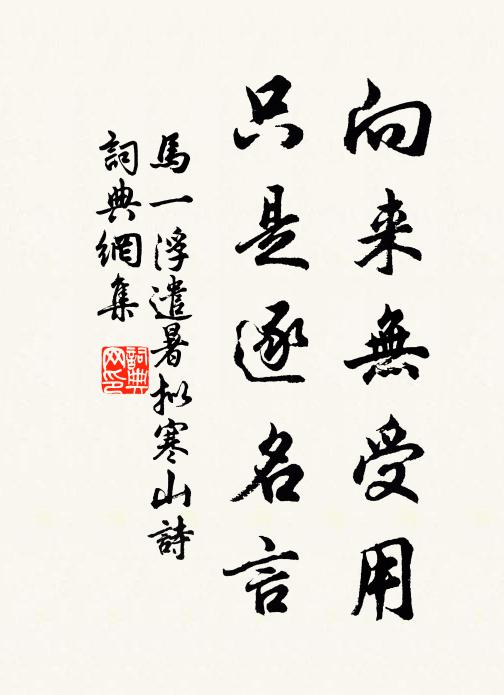 向来無受用
只是逐名言
馬一浮遣暑拟寒山詩
詞典網集
詞典网印